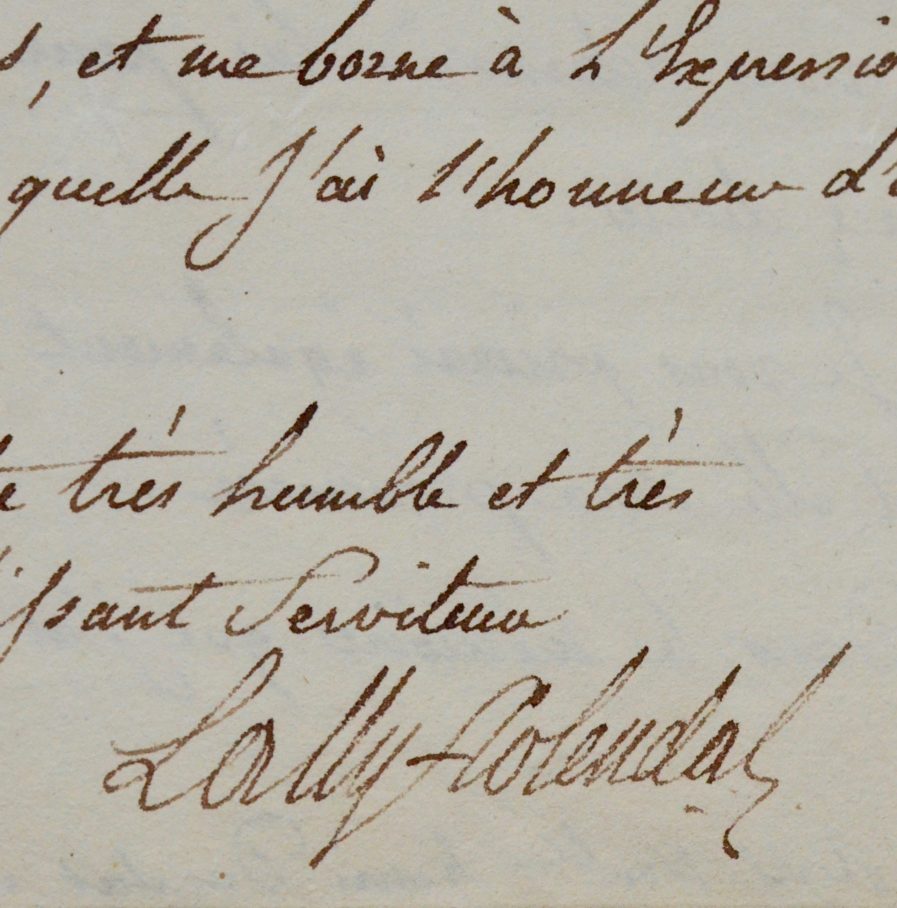 s, et me borne à L'Expressio
quelle J'ai l'honneur d'
très humble et très
issant Serviteur
Lally-Tolendal